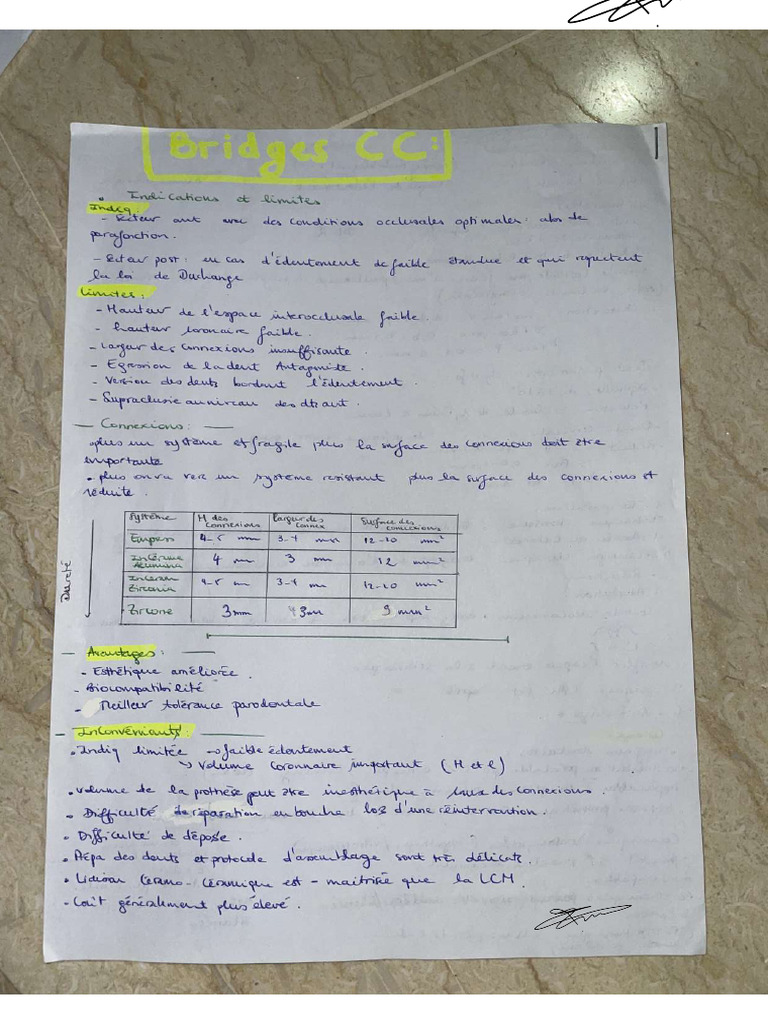 Bridges CC:
• Indications et limites
Indiq:
- Secteur ant avec des conditions occlusales optimales: abs de
parafonction.
- Secteur post: en cas d'édentement de faible étendue et qui respectent
la loi de Duchange
Limites:
- Hauteur de l'espace interocclusale faible.
- hauteur coronaire faible.
- Largeur des connexions insuffisante.
- Egression de la dent Antagoniste.
- Version des dents bordant l'édentement.
- Supraclusie au niveau des dts ant.
— Connexions: —
• plus un système et fragile plus la surface des connexions doit être
importante
• plus on va vers un système resistant plus la surface des connexions et
réduite.
Système H des connexions Largeur des connex Surface des connexions
Empress 4-5 mm 3-4 mm 12-20 mm²
InCéram Alumina 4 mm 3 mm 12 mm²
InCeram Zirconia 4-5 m 3-4 m 12-20 mm²
Zircone 3mm 3mm 9 mm²
Dureté
— Avantages: —
- Esthétique améliorée.
- Biocompatibilité
- Meilleur tolérance parodontale
— Inconvéniants: —
• Indiq limitée → faible édentement
↘ Volume coronnaire important (H et l)
• Volume de la prothèse peut être inesthétique à cause des connexions.
• Difficulté de réparation en bouche lors d'une réintervention.
• Difficulté de dépose.
• Prépa des dents et protocole d'assemblage sont très délicats.
• Liaison Céramo-Céramique est - maitrisée que la LCM.
- Coût généralement plus élevé.